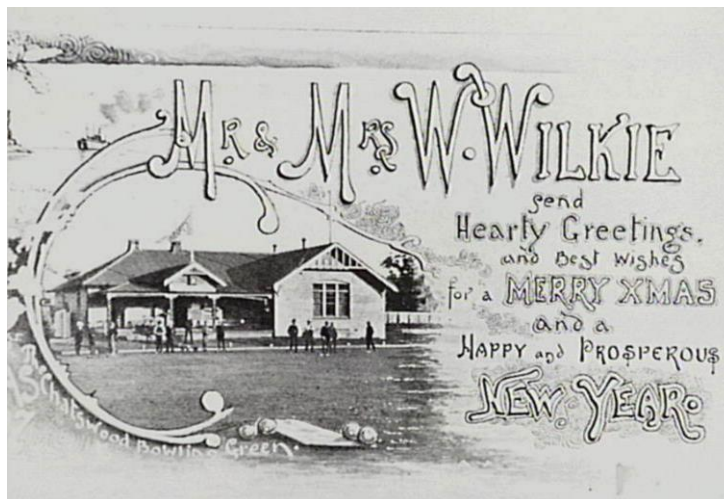 Mr. & Mrs W. Wilkie
send
Hearty Greetings.
and Best Wishes
for a MERRY XMAS
and a
HAPPY and PROSPEROUS
NEW. YEAR.
Chatswood Bowling Green.